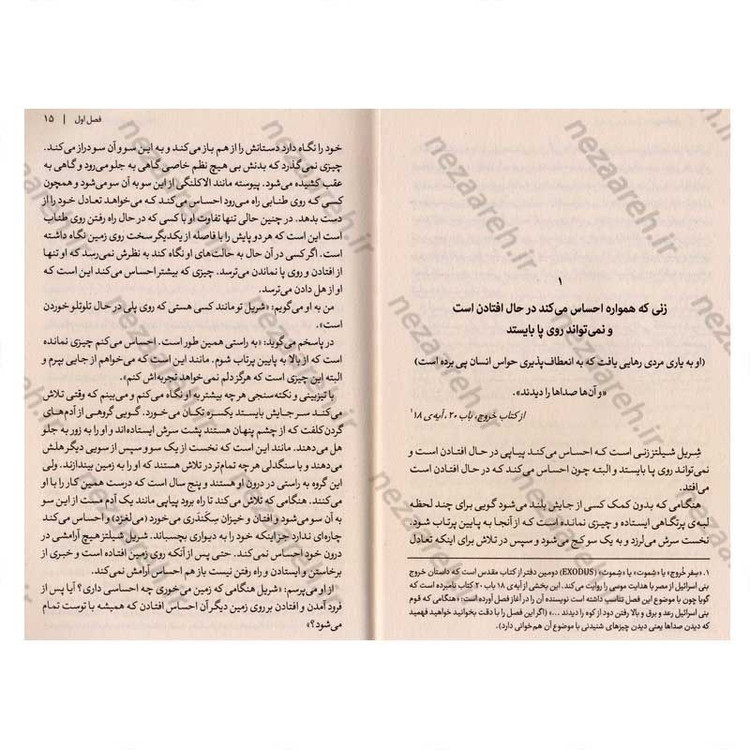 ۱
زنی که همواره احساس می‌کند در حال افتادن است
و نمی‌تواند روی پا بایستد
(او به یاری مردی رهایی یافت که به انعطاف‌پذیری حواس انسان پی برده است)
«و آن‌ها صداها را دیدند».
از کتاب خروج، باب ۲۰، آیه‌ی ۱۸¹
شریل شیلتز زنی است که احساس می‌کند پیاپی در حال افتادن است و
نمی‌تواند روی پا بایستد و البته چون احساس می‌کند که در حال افتادن است
می‌افتد.
هنگامی که بدون کمک کسی از جایش بلند می‌شود گویی برای چند لحظه
لبه‌ی پرتگاهی ایستاده و چیزی نمانده است که از آنجا به پایین پرتاب شود.
نخست سرش می‌لرزد و به یک سو کج می‌شود و سپس در تلاش برای اینکه تعادل
۱. «سِفر خُروج» یا «شِموت» یا «شِموث» (EXODUS) دومین دفتر از کتاب مقدس است که داستان خروج
بنی اسرائیل از مصر با هدایت موسی را روایت می‌کند. این بخش از آیه‌ی ۱۸ باب ۲۰ کتاب نامبرده است که
گویا چون با موضوع این فصل تناسب داشته است نویسنده آن را در آغاز فصل آورده است: «هنگامی که قوم
بنی اسرائیل رعد و برق و بالا رفتن دود از کوه را دیدند ...» (اگر این فصل را با دقت بخوانید خواهید فهمید
که دیدن صداها یعنی دیدن چیزهای شنیدنی با موضوع آن هم‌خوانی دارد).
فصل اول | ۱۵
خود را نگاه دارد دستانش را از هم باز می‌کند و به این سو و آن سو دراز می‌کند.
چیزی نمی‌گذرد که بدنش بی هیچ نظم خاصی گاهی به جلو می‌رود و گاهی به
عقب کشیده می‌شود. پیوسته مانند الاکلنگی از این سو به آن سو می‌شود و همچون
کسی که روی طنابی راه می‌رود احساس می‌کند که می‌خواهد تعادل خود را از
دست بدهد. در چنین حالی تنها تفاوت او با کسی که در حال راه رفتن روی طناب
است این است که هر دو پایش را با فاصله از یکدیگر سخت روی زمین نگاه داشته
است. اگر کسی در آن حال به حالت‌های او نگاه کند به نظرش نمی‌رسد که او تنها
از افتادن و روی پا نماندن می‌ترسد. چیزی که بیشتر احساس می‌کند این است که
او از هل دادن می‌ترسد.
من به او می‌گویم: «شریل تو مانند کسی هستی که روی پلی در حال تلوتلو خوردن
است».
در پاسخم می‌گوید: «به راستی همین طور است. احساس می‌کنم چیزی نمانده
است که از بالا به پایین پرتاب شوم. مانند این است که می‌خواهم از جایی بپرم و
البته این چیزی است که هرگز دلم نمی‌خواهد تجربه‌اش کنم».
با تیزبینی و نکته‌سنجی هر چه بیشتر به او نگاه می‌کنم و می‌بینم که وقتی تلاش
می‌کند سر جایش بایستد یکسره تکان می‌خورد. گویی گروهی از آدم‌های
گردن کلفت که از چشم پنهان هستند پشت سرش ایستاده‌اند و او را به زور به جلو
هل می‌دهند. مانند این است که نخست از یک سو و سپس از سویی دیگر هلش
می‌دهند و با سنگدلی هر چه تمام‌تر در تلاش هستند که او را به زمین بیندازند. ولی
این گروه به راستی در درون او هستند و پنج سال است که درست همین کار را با او
می‌کنند. هنگامی که تلاش می‌کند تا راه برود پیاپی مانند یک آدم مست از این سو
به آن سو می‌شود و افتان و خیزان سِکَندَری می‌خورد (می‌لغزد) و احساس می‌کند
چاره‌ای ندارد جز اینکه خود را به دیواری بچسباند. شریل شیلتز هیچ آرامشی در
درون خود احساس نمی‌کند. حتی پس از آنکه روی زمین افتاده است و خبری از
برخاستن و ایستادن و راه رفتن نیست باز هم احساس آرامش نمی‌کند.
از او می‌پرسم: «شریل هنگامی که زمین می‌خوری چه احساسی داری؟ آیا پس از
فرود آمدن و افتادن بر روی زمین دیگر آن احساس افتادن که همیشه با توست تمام
می‌شود؟»
nezaareh.ir